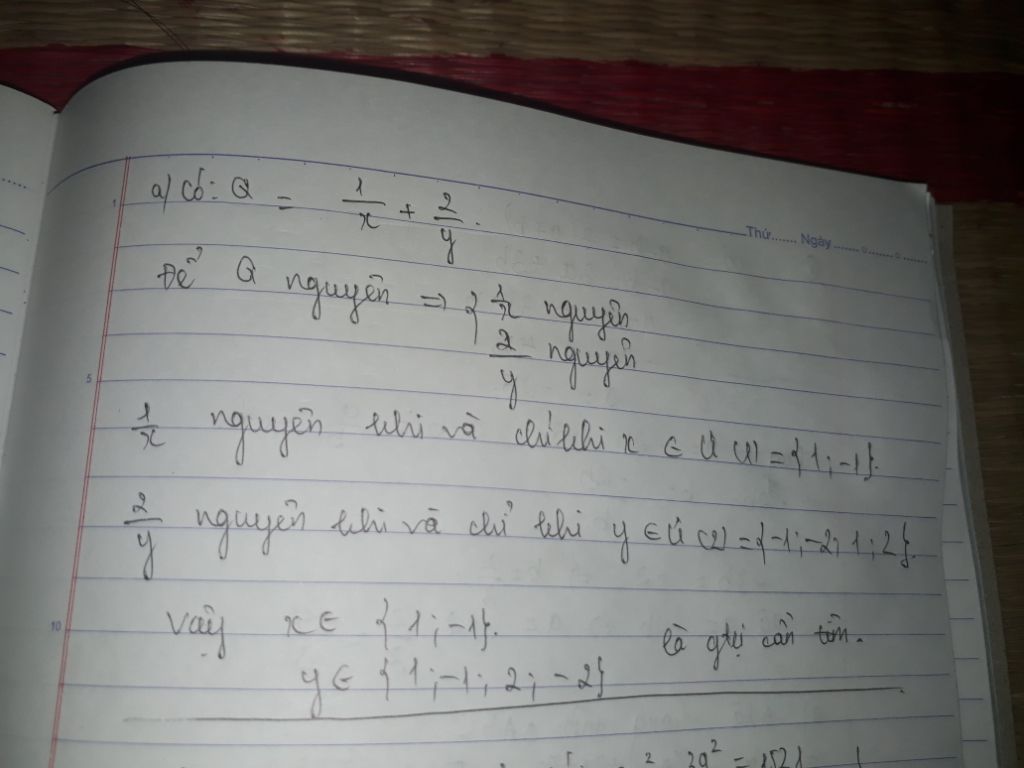 Thứ...... Ngày
1
a) Có: Q = 1/x + 2/y.
Để Q nguyên => { 1/x nguyên
2/y nguyên
5
1/x nguyên khi và chỉ khi x ∈ Ư (1) = {1; -1}.
2/y nguyên khi và chỉ khi y ∈ Ư (2) = {-1; -2; 1; 2}.
10
Vậy x ∈ {1; -1}.
y ∈ {1; -1; 2; -2} là gtrị cần tìm.
= 1521